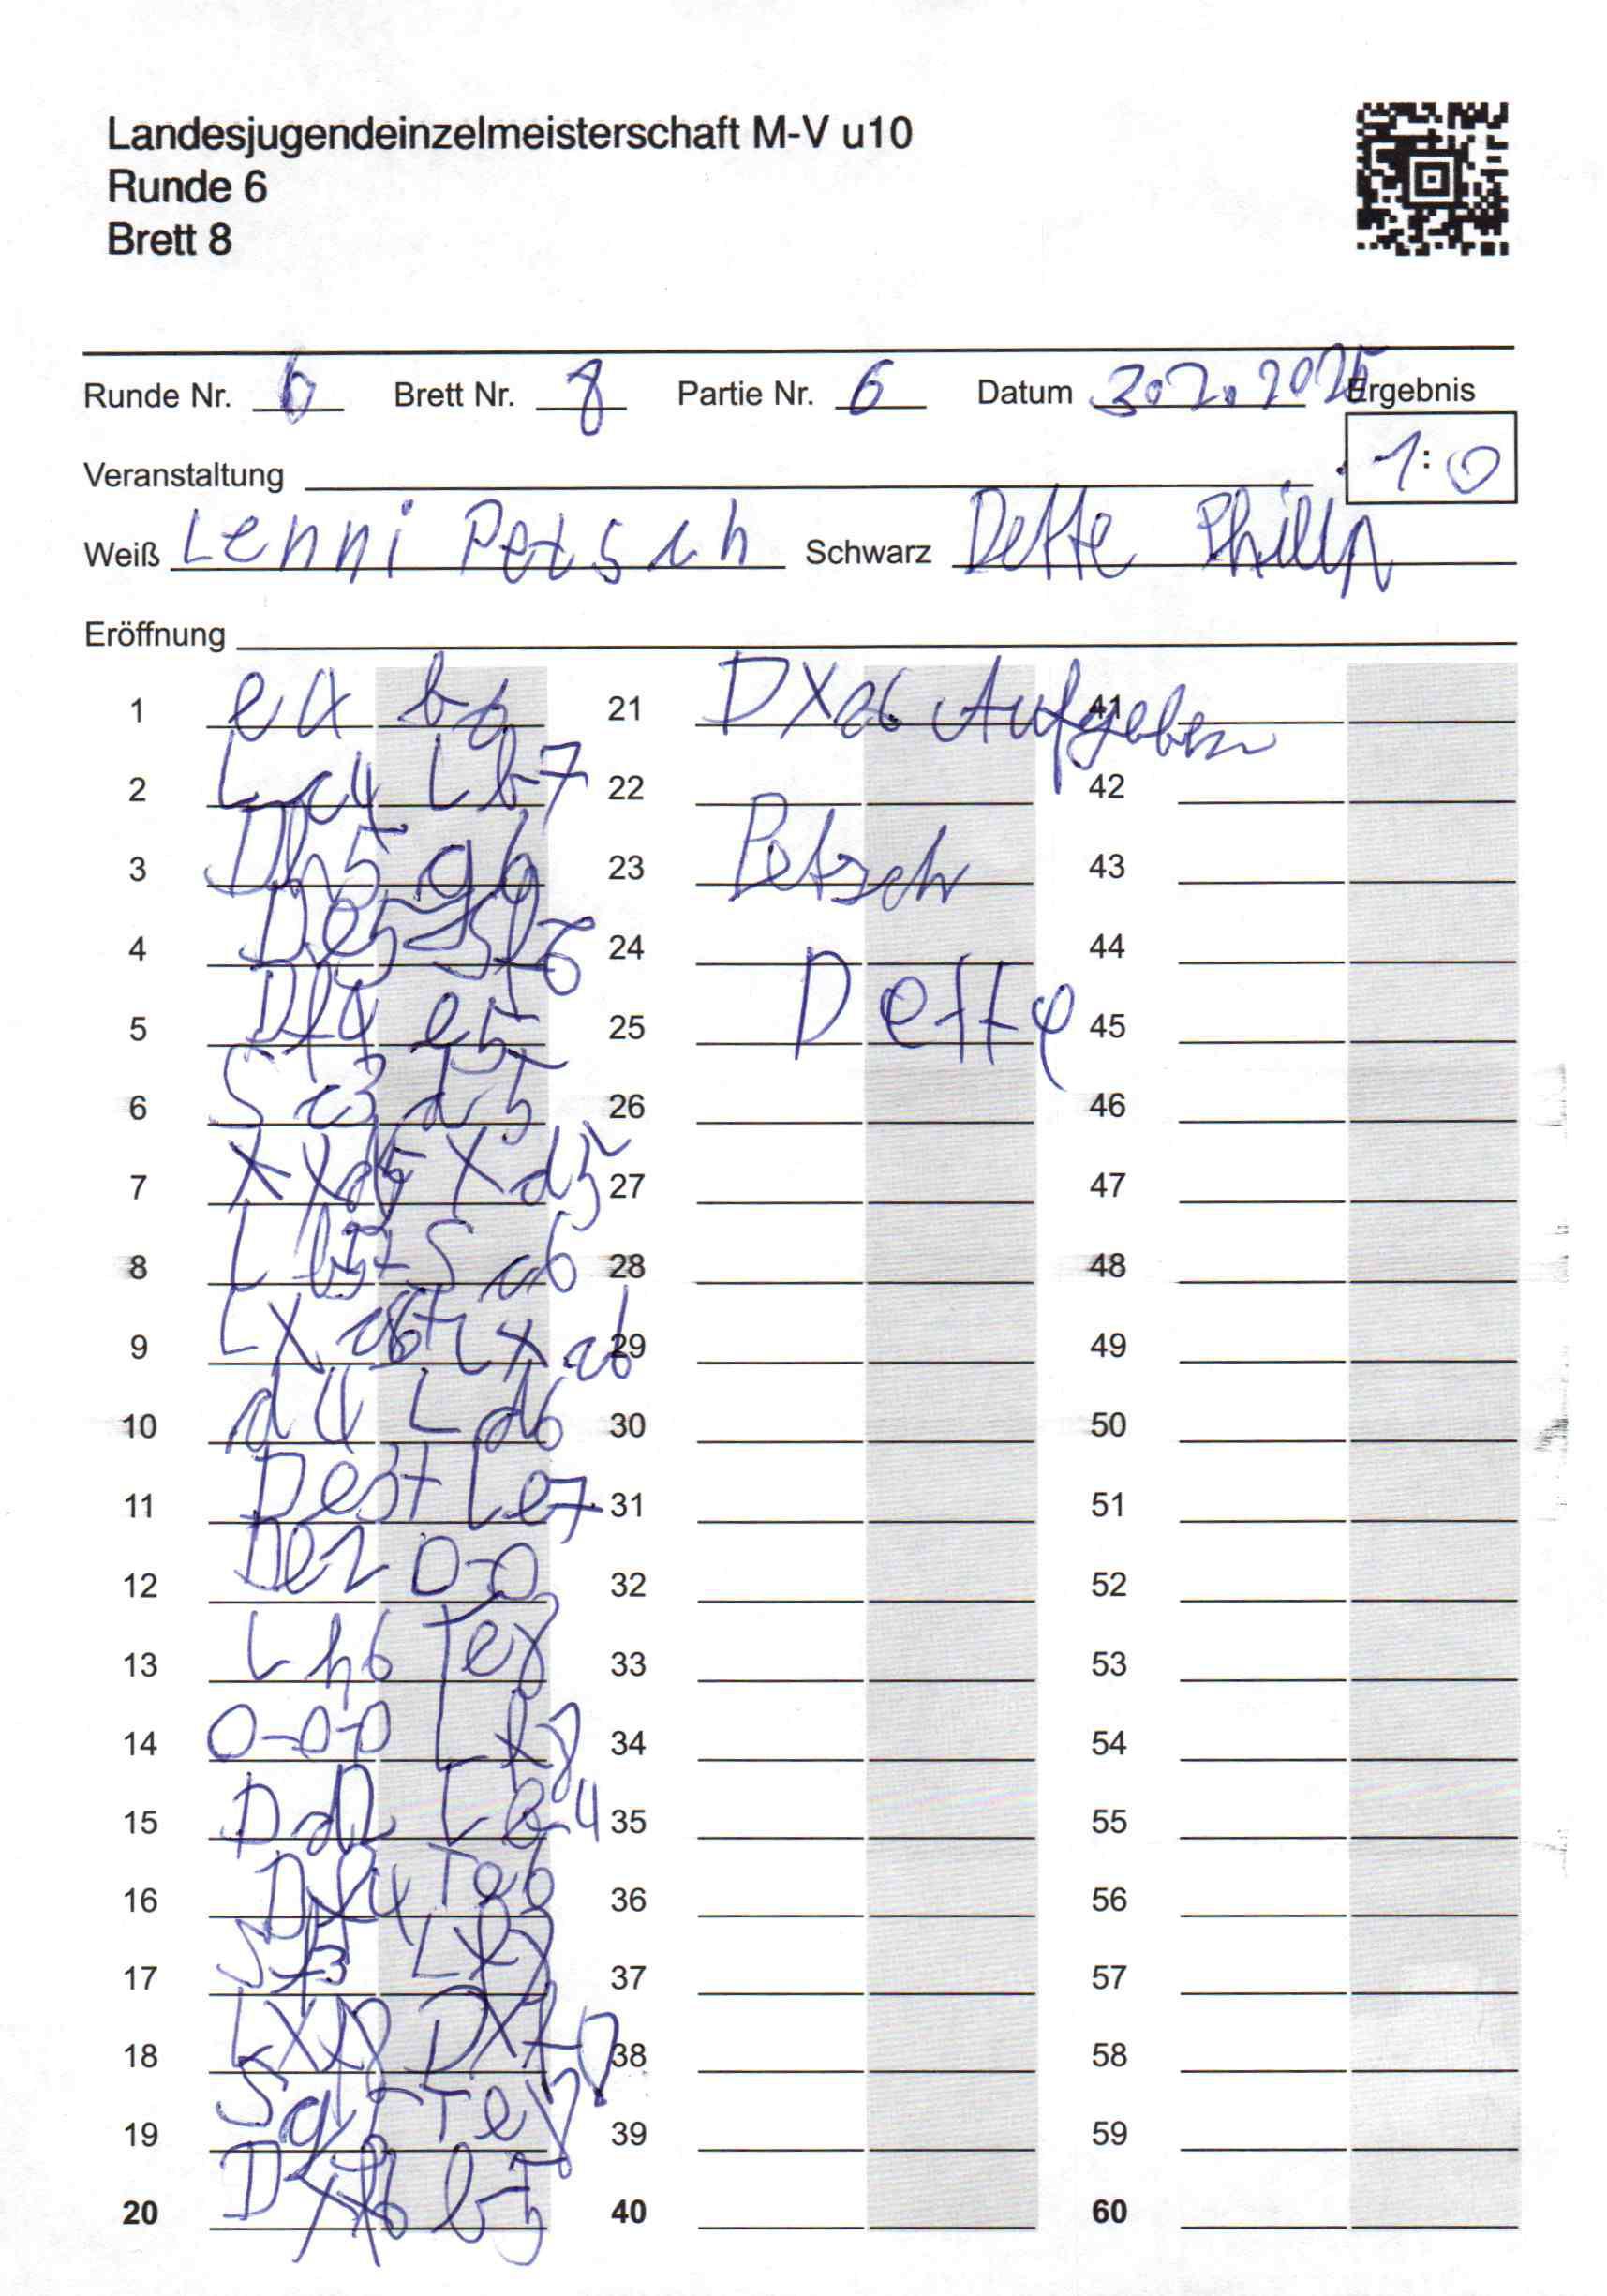 Landesjugendeinzelmeisterschaft M-V u10
Runde 6
Brett 8
Runde Nr. 6 Brett Nr. 8 Partie Nr. 6 Datum 3.2.2025 Ergebnis
Veranstaltung 1:0
Weiß Lenni Petsch Schwarz Dette
Eröffnung
1 e4 b6 21 DXa6 Aufgeben 41
2 Lc4 Lb7 22 42
3 Dh5 g6 23 Petsch 43
4 De5 Sf6 24 44
5 Df4 e5 25 Dette 45
6 Sc3 d5 26 46
7 Xd5 Xd5 27 47
8 Lb5+ Sc6 28 48
9 LXc6+ LXc6 29 49
10 d4 Ld6 30 50
11 De3+ Le7 31 51
12 De2 0-0 32 52
13 Lh6 Te8 33 53
14 0-0-0 Lf8 34 54
15 Dd2 Lb4 35 55
16 Df4 Te6 36 56
17 Sf3 Lf8 37 57
18 LXf8 DXf8 38 58
19 Sg5 Te8 39 59
20 DXf6 b5 40 60